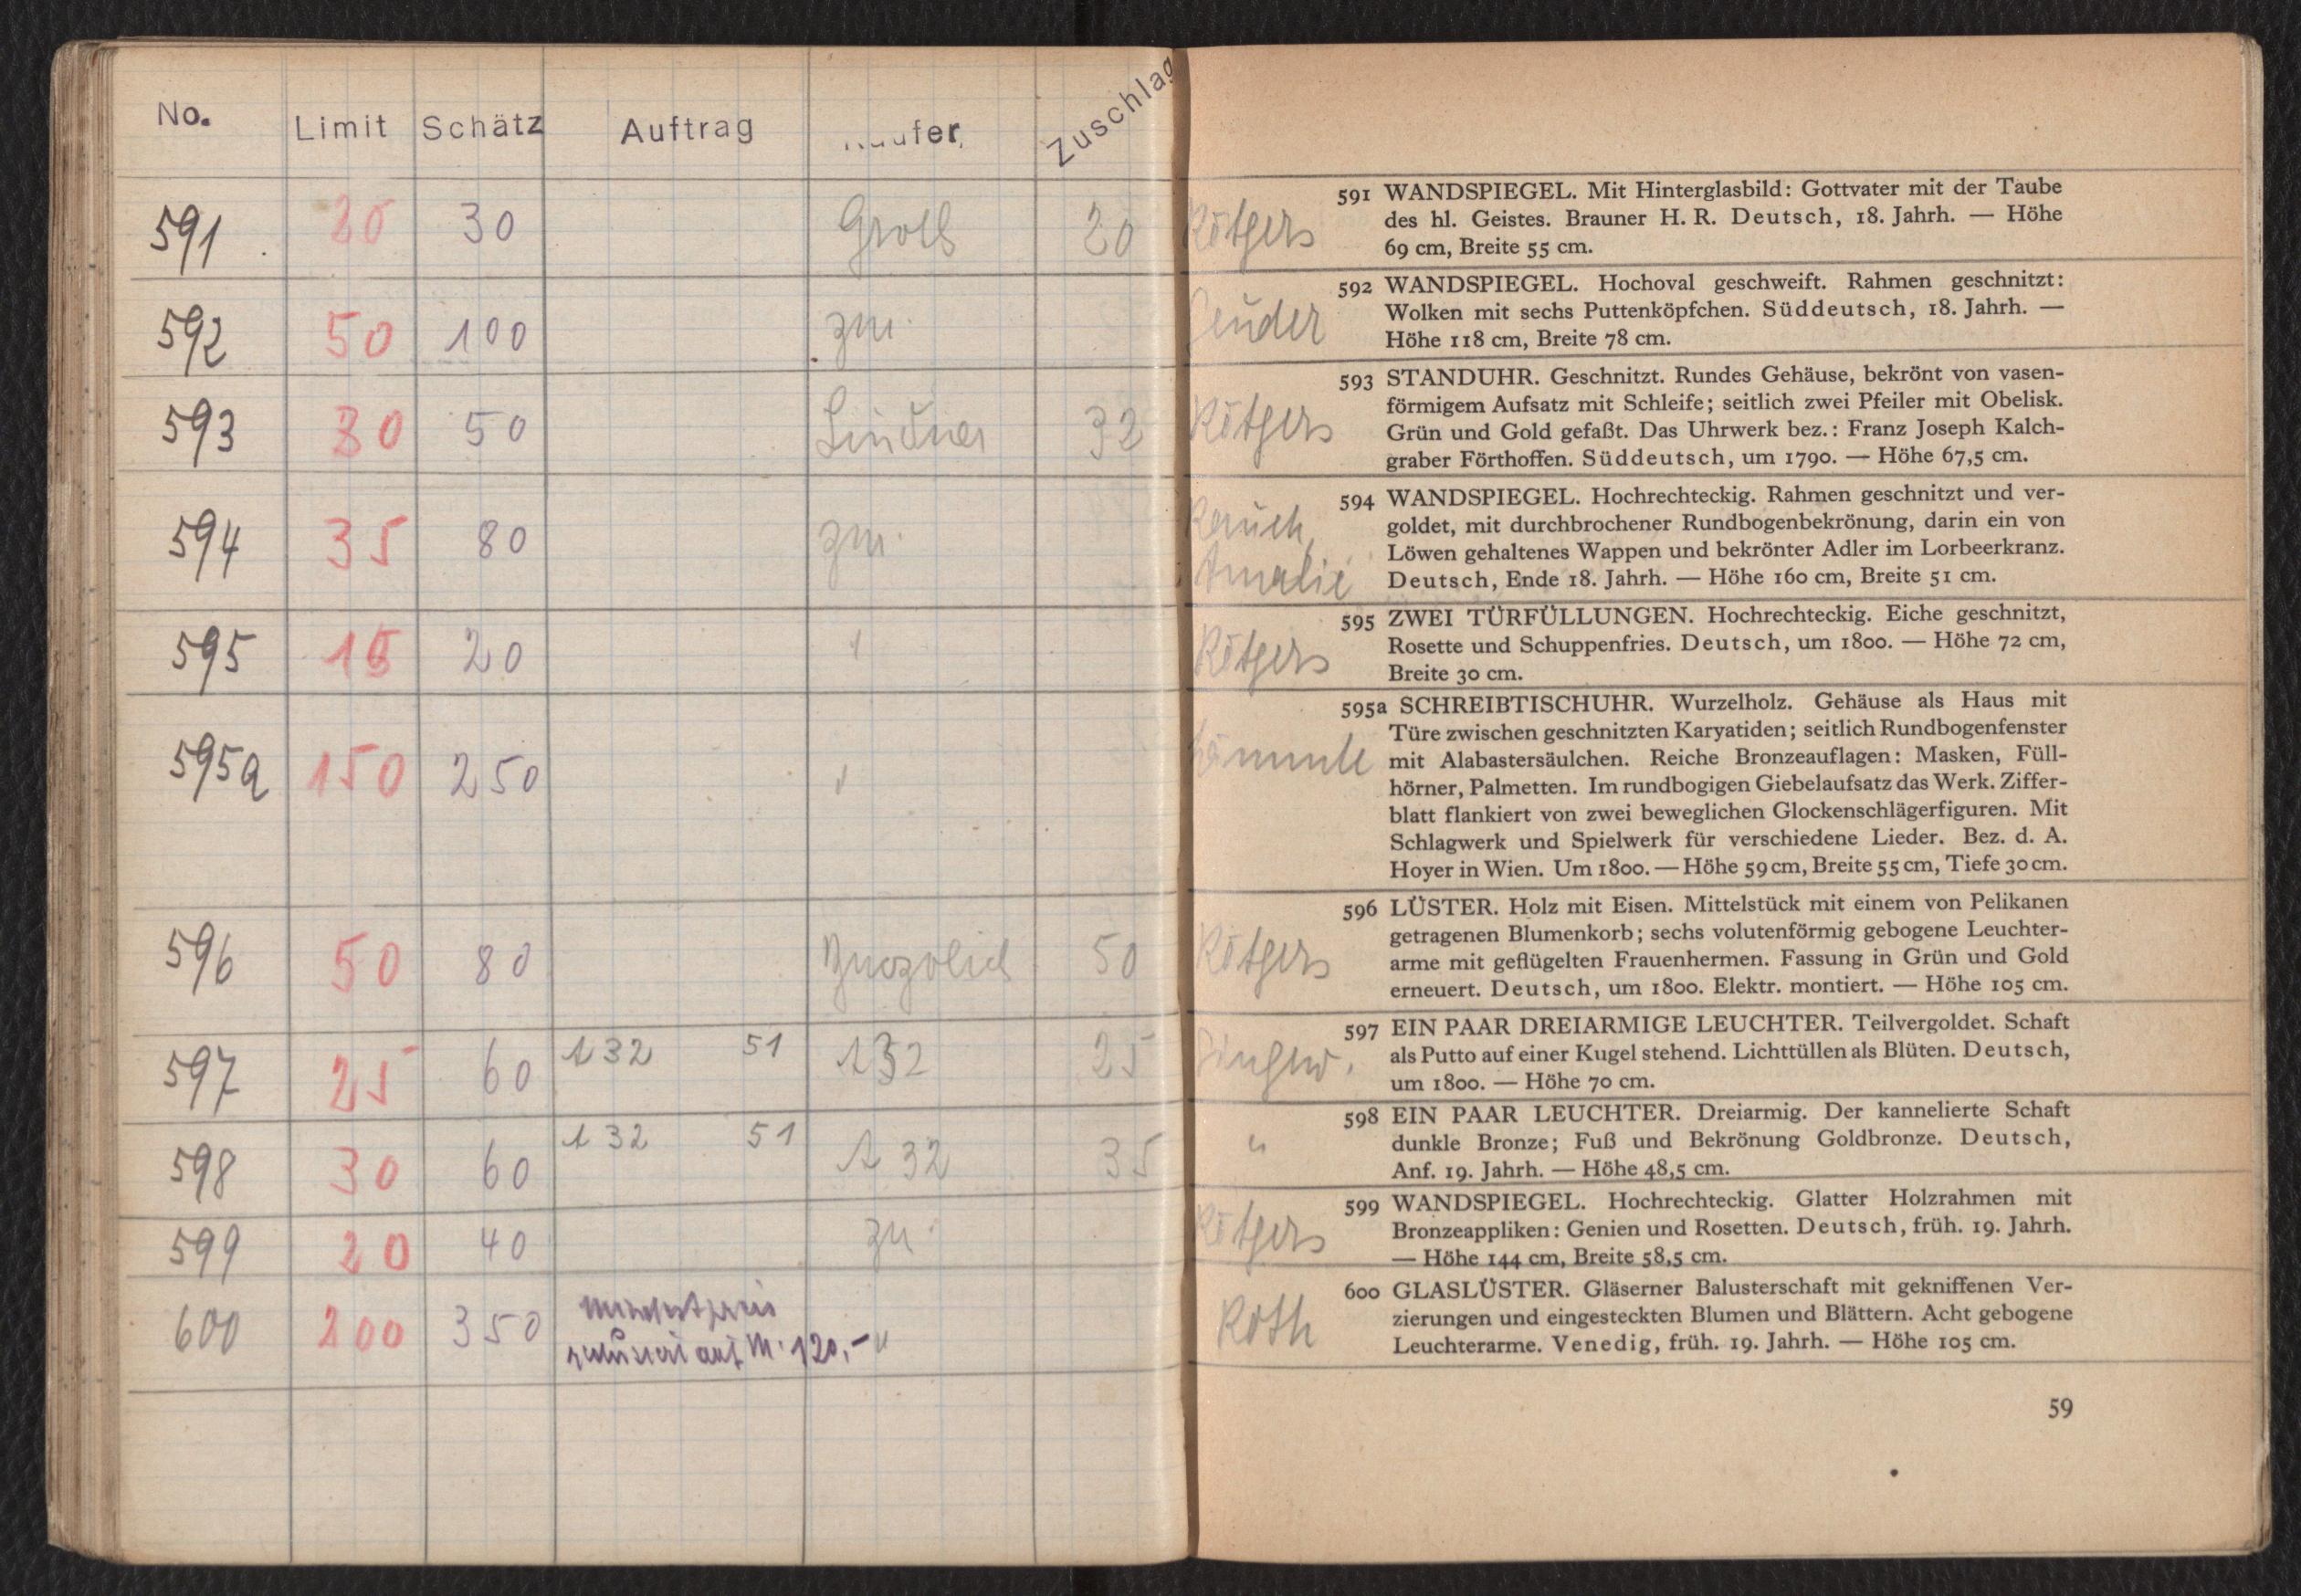 No. Limit Schätz Auftrag Zuschlag
591 20 30 20
592 50 100 zur.
593 30 50 Lindner 32
594 35 80 zur.
595 15 20 "
595a 150 250 "
596 50 80 50
597 25 60 A 32 51 A 32 25
598 30 60 A 32 51 A 32 35
599 20 40 zur.
600 200 350 Mindestpreis
reduziert auf M. 120,- "
Rötgers
Rötgers
Rauch
Amalie
Rötgers
Rötgers
"
Rötgers
Roth
591 WANDSPIEGEL. Mit Hinterglasbild: Gottvater mit der Taube
des hl. Geistes. Brauner H. R. Deutsch, 18. Jahrh. — Höhe
69 cm, Breite 55 cm.
592 WANDSPIEGEL. Hochoval geschweift. Rahmen geschnitzt:
Wolken mit sechs Puttenköpfchen. Süddeutsch, 18. Jahrh. —
Höhe 118 cm, Breite 78 cm.
593 STANDUHR. Geschnitzt. Rundes Gehäuse, bekrönt von vasen-
förmigem Aufsatz mit Schleife; seitlich zwei Pfeiler mit Obelisk.
Grün und Gold gefaßt. Das Uhrwerk bez.: Franz Joseph Kalch-
graber Förthoffen. Süddeutsch, um 1790. — Höhe 67,5 cm.
594 WANDSPIEGEL. Hochrechteckig. Rahmen geschnitzt und ver-
goldet, mit durchbrochener Rundbogenbekrönung, darin ein von
Löwen gehaltenes Wappen und bekrönter Adler im Lorbeerkranz.
Deutsch, Ende 18. Jahrh. — Höhe 160 cm, Breite 51 cm.
595 ZWEI TÜRFÜLLUNGEN. Hochrechteckig. Eiche geschnitzt,
Rosette und Schuppenfries. Deutsch, um 1800. — Höhe 72 cm,
Breite 30 cm.
595a SCHREIBTISCHUHR. Wurzelholz. Gehäuse als Haus mit
Türe zwischen geschnitzten Karyatiden; seitlich Rundbogenfenster
mit Alabastersäulchen. Reiche Bronzeauflagen: Masken, Füll-
hörner, Palmetten. Im rundbogigen Giebelaufsatz das Werk. Ziffer-
blatt flankiert von zwei beweglichen Glockenschlägerfiguren. Mit
Schlagwerk und Spielwerk für verschiedene Lieder. Bez. d. A.
Hoyer in Wien. Um 1800. — Höhe 59 cm, Breite 55 cm, Tiefe 30 cm.
596 LÜSTER. Holz mit Eisen. Mittelstück mit einem von Pelikanen
getragenen Blumenkorb; sechs volutenförmig gebogene Leuchter-
arme mit geflügelten Frauenhermen. Fassung in Grün und Gold
erneuert. Deutsch, um 1800. Elektr. montiert. — Höhe 105 cm.
597 EIN PAAR DREIARMIGE LEUCHTER. Teilvergoldet. Schaft
als Putto auf einer Kugel stehend. Lichttüllen als Blüten. Deutsch,
um 1800. — Höhe 70 cm.
598 EIN PAAR LEUCHTER. Dreiarmig. Der kannelierte Schaft
dunkle Bronze; Fuß und Bekrönung Goldbronze. Deutsch,
Anf. 19. Jahrh. — Höhe 48,5 cm.
599 WANDSPIEGEL. Hochrechteckig. Glatter Holzrahmen mit
Bronzeappliken: Genien und Rosetten. Deutsch, früh. 19. Jahrh.
— Höhe 144 cm, Breite 58,5 cm.
600 GLASLÜSTER. Gläserner Balusterschaft mit gekniffenen Ver-
zierungen und eingesteckten Blumen und Blättern. Acht gebogene
Leuchterarme. Venedig, früh. 19. Jahrh. — Höhe 105 cm.
59